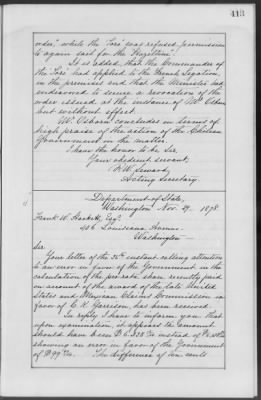 413
order," while the "Tore" was refused permission
to again sail for the Hazeltine".
It is added, that the Commander of
the "Tore" had applied to the French Legation,
in the premises and that the Minister had
endeavored to secure a revocation of the
order issued at the instance of Mr Osborn
but without effect.
Mr. Osborn concludes in terms of
high praise of the action of the Chilean
Government in the matter.
I have the honor to be Sir
Your obedient servant,
F. W. Seward,
Acting Secretary.
Department of State,
Washington Nov. 29, 1878.
Frank W. Hackett, Esq.
406 Louisiana Avenue
Washington
Sir.
Your letter of the 25th instant calling attention
to an error in favor of the Government in the
calculation of the pro rata share recently paid
on account of the award of the late United
States and Mexican Claims Commission in
favor of C. K. Garrison has been received.
In reply I have to inform you that
upon examination, it appears the amount
should have been
showing an error in favor of the Government
of The difference of ten cents